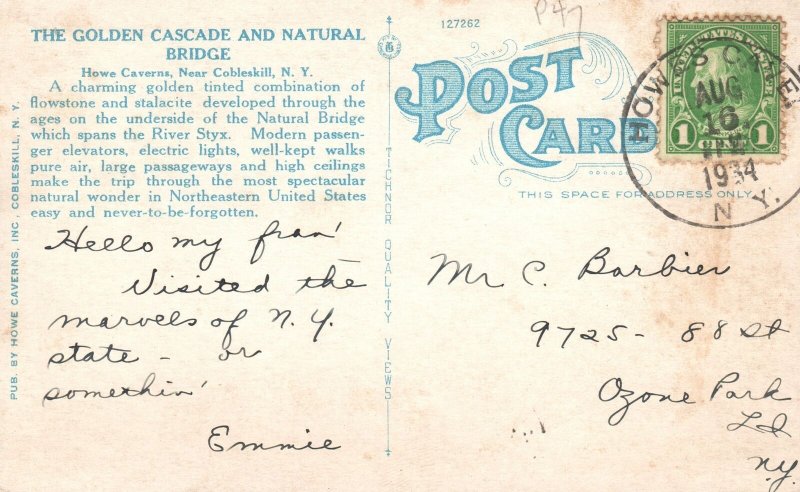 THE GOLDEN CASCADE AND NATURAL
BRIDGE
Howe Caverns, Near Cobleskill, N. Y.
A charming golden tinted combination of
flowstone and stalacite developed through the
ages on the underside of the Natural Bridge
which spans the River Styx. Modern passen-
ger elevators, electric lights, well-kept walks
pure air, large passageways and high ceilings
make the trip through the most spectacular
natural wonder in Northeastern United States
easy and never-to-be-forgotten.
Hello my fran'
Visited the
marvels of N.Y.
state - or
somethin'
Emmie
PUB. BY HOWE CAVERNS, INC., COBLESKILL, N. Y.
TICHNOR QUALITY VIEWS
127262
P47
POST
CARD
THIS SPACE FOR ADDRESS ONLY
UNITED STATES POSTAGE
1 CENT 1
HOWES CAVE
AUG
16
1934
N. Y.
Mr C. Barbier
9725 - 88 St
Ozone Park
L I
N.Y.